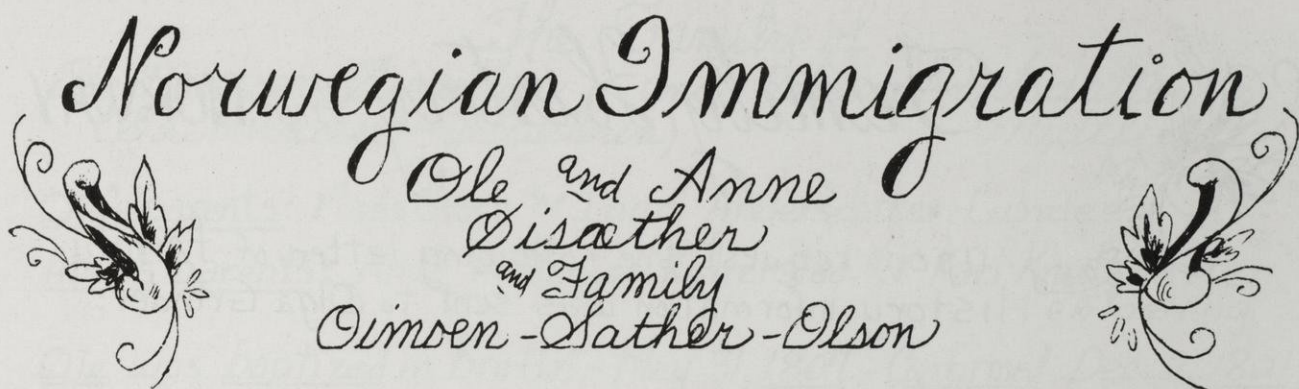 Norwegian Immigration
Ole and Anne
Øisæther
and Family
Oimoen - Sather - Olson